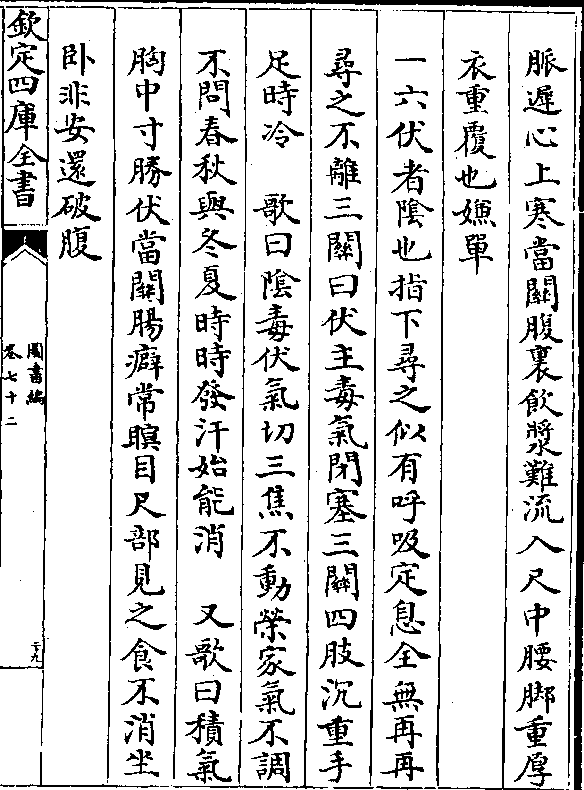 脈遲心上寒當關腹裏飲漿難流入尺中腰脚重厚
衣重覆也嫌單
一六伏者陰也指下尋之似有呼吸定息全無再再
尋之不離三關曰伏主毒氣閉塞三關四肢沉重手
足時冷　歌曰陰毒伏氣切三焦不動榮家氣不調
不問春秋與冬夏時時發汗始能消　又歌曰積氣
胸中寸勝伏當關腸癖常瞑目尺部見之食不消坐
卧非安還破腹
欽定四庫全書
圖書編
卷七十二
二十九